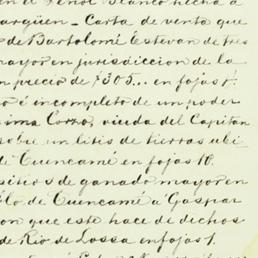 en el Peñol Blanco hecha á
Carta de venta que
de Bartolomé Estevan de tres
mayor en jurisdiccion de la
en precio de $305... en fojas
é incompleto de un poder
Corzo, viuda del Capitan
sobre un litis de tierras ubi
de Cuencamé en fojas 10.
sitios de ganado mayor en
de Cuencamé á Gaspar
con que este hace de dichos
de Rio de Lossa en fojas 1.